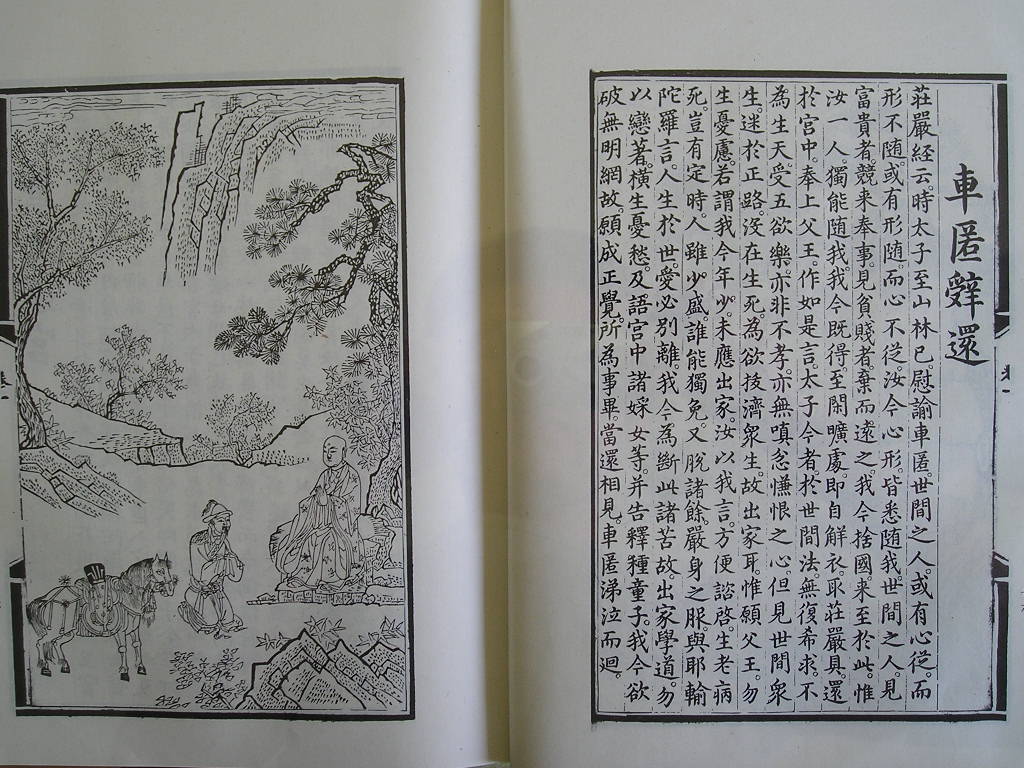 車匿辭還
莊嚴經云。時太子至山林已。慰諭車匿。世間之人。或有心從。而
形不隨。或有形隨。而心不從。汝今心形。皆悉隨我。世間之人。見
富貴者。競來奉事。見貧賤者。棄而遠之。我今捨國。來至於此。惟
汝一人。獨能隨我。我今既得。至閑曠處。即自解衣。取莊嚴具。還
於宮中。奉上父王。作如是言。太子今者。於世間法。無復希求。不
為生天受五欲樂。亦非不孝。亦無嗔忿慊恨之心。但見世間眾
生。迷於正路。沒在生死。為欲技濟眾生。故出家耳。惟願父王。勿
生憂慮。若謂我今年少。未應出家。汝以我言。方便諮啓。生老病
死。豈有定時。人雖少盛。誰能獨免。又脫諸餘嚴身之服。與耶輸
陀羅言。人生於世。愛必別離。我今為斷此諸苦故。出家學道。勿
以戀著。橫生憂愁。及語宮中諸婇女等。并告釋種童子。我今欲
破無明網故。願成正覺。所為事畢。當還相見。車匿涕泣而迴。